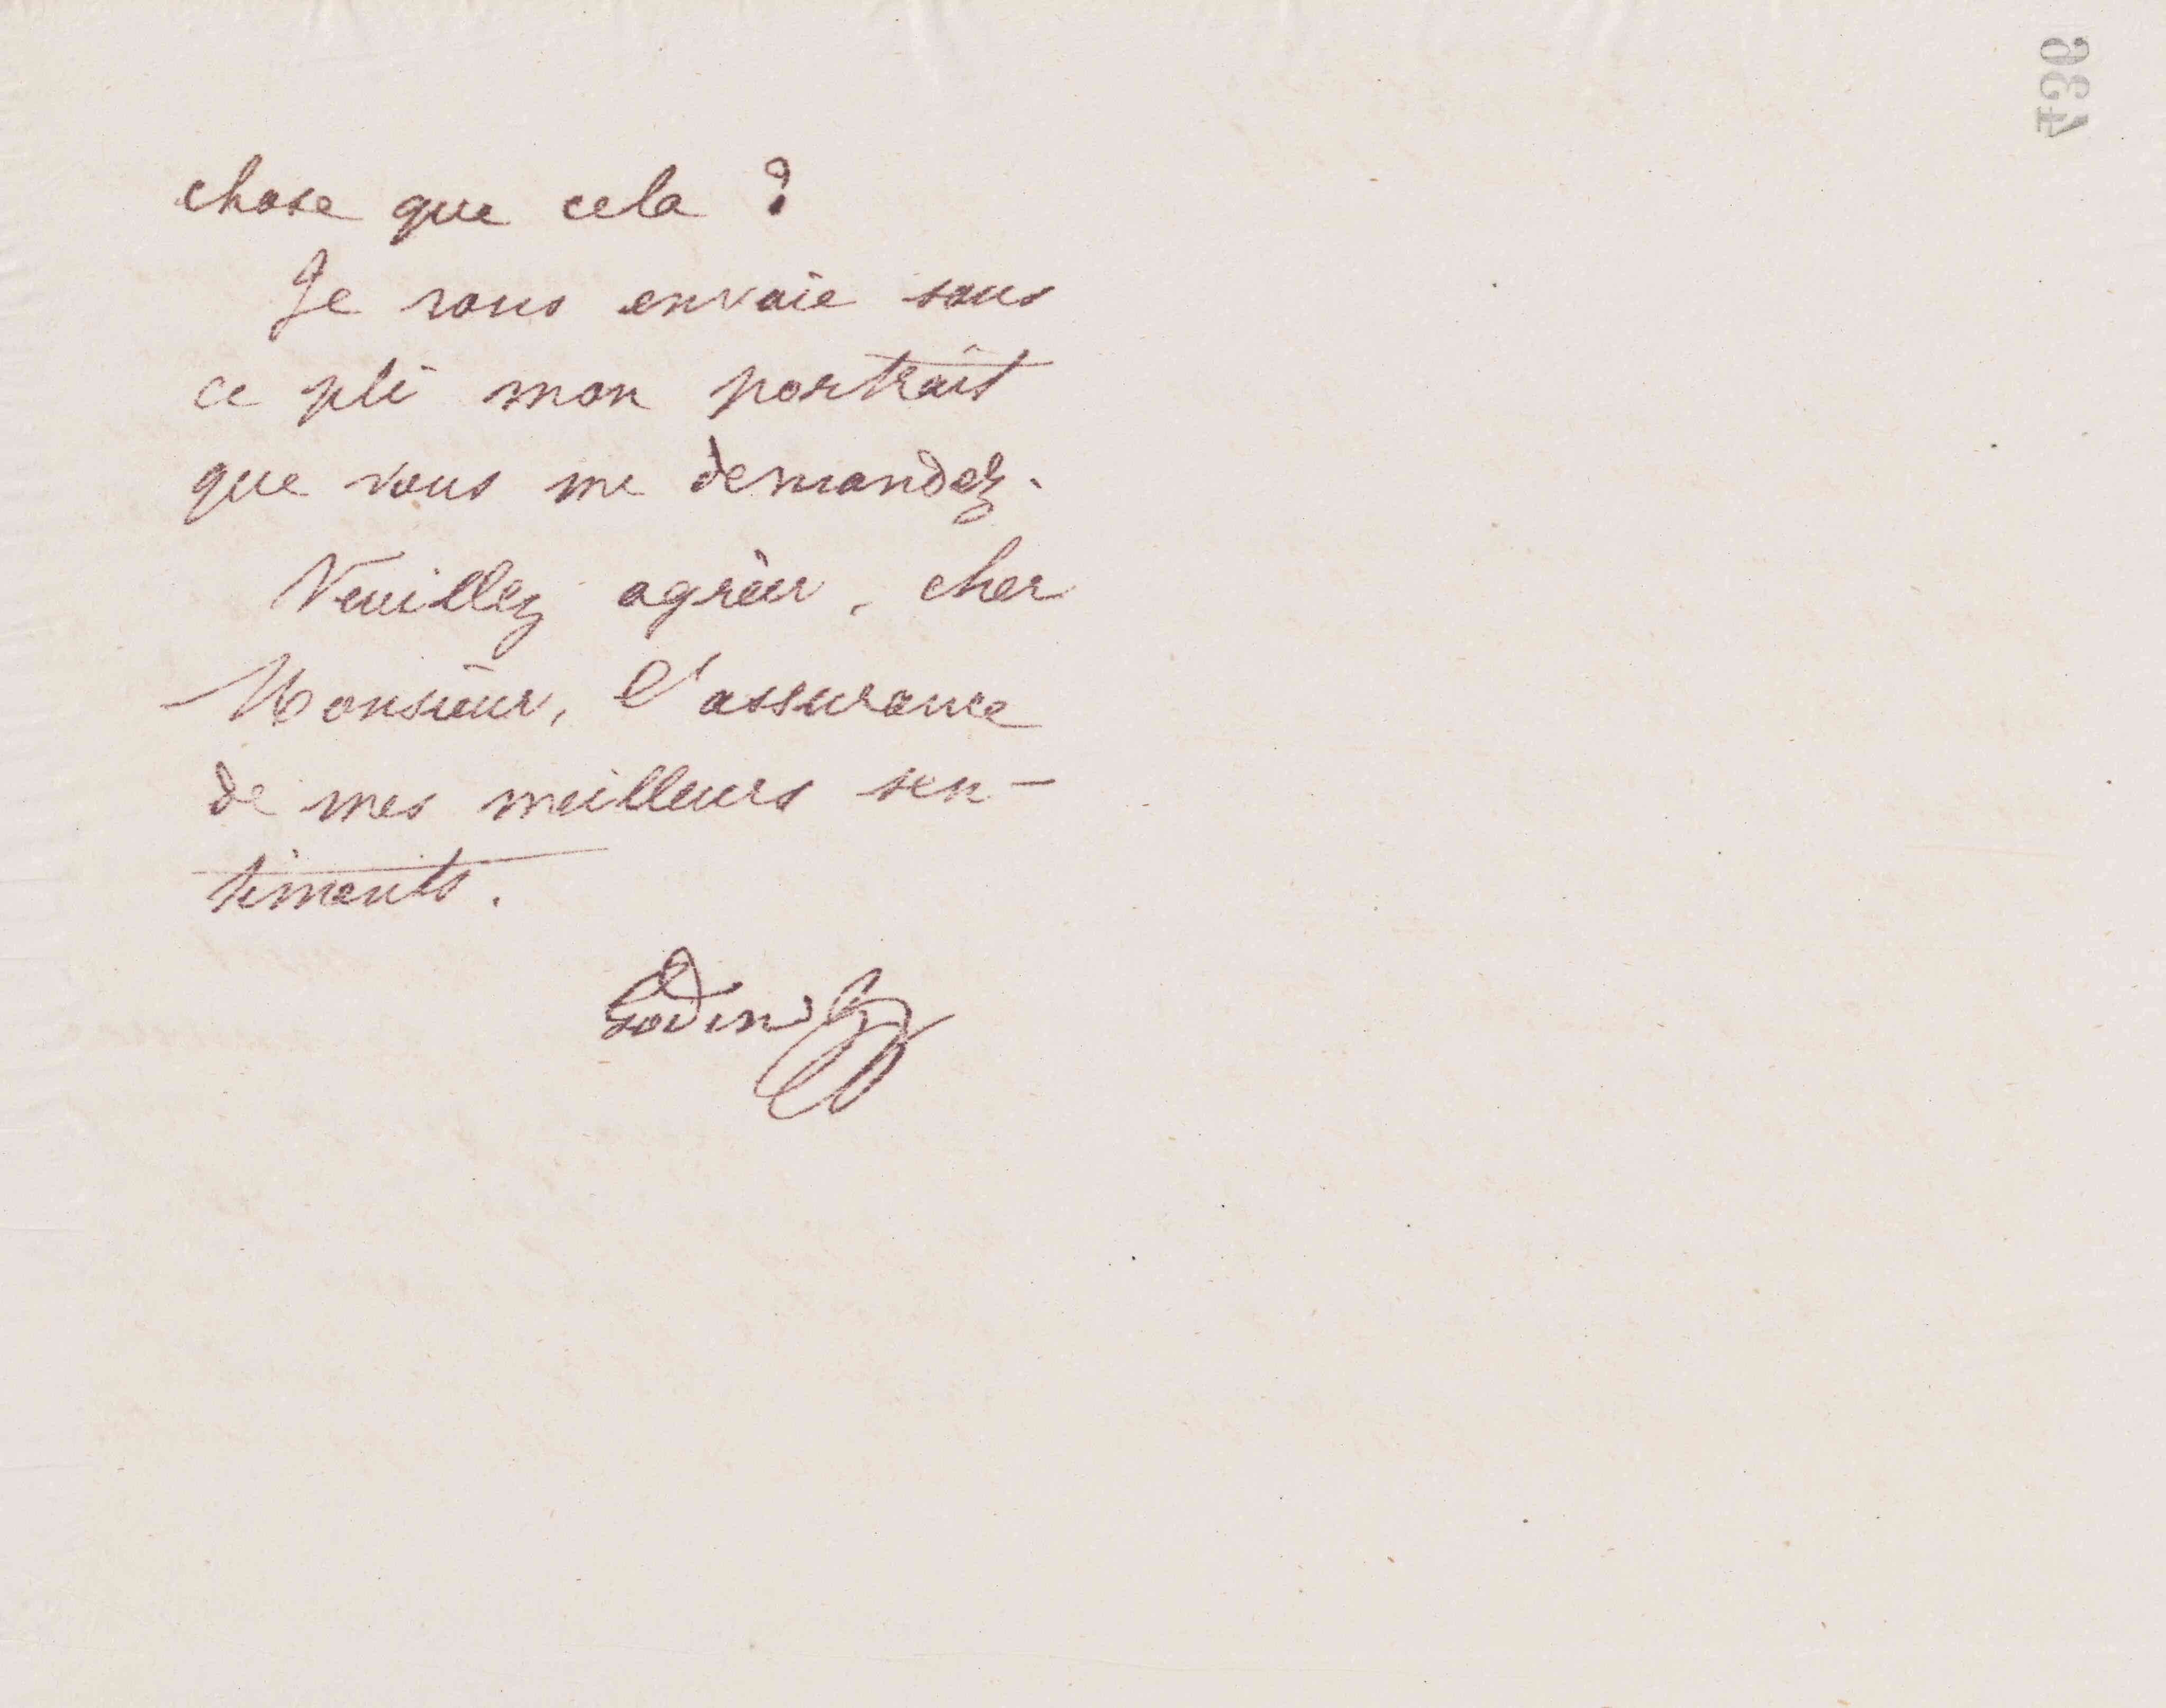 436
chose que cela ?
Je vous envoie sous
ce pli mon portrait
que vous me demandez.
Veuillez agréer, cher
Monsieur, l'assurance
de mes meilleurs sen-
timents.
Godin